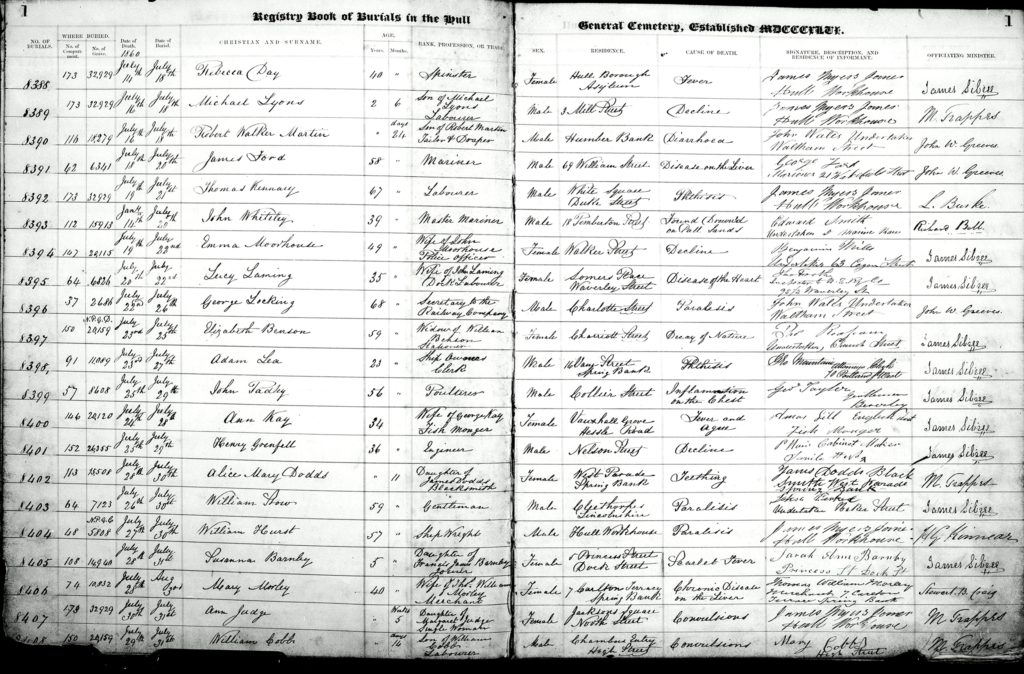 1
Registry Book of Burials in the Hull General Cemetery, Established MDCCCXLVI.
1
NO. OF BURIALS. WHERE BURIED. No. of Compartment. No. of Grave. Date of Death. 1860 Date of Burial. CHRISTIAN AND SURNAME. AGE. Years. Months. RANK, PROFESSION, OR TRADE. SEX. RESIDENCE. CAUSE OF DEATH. SIGNATURE, DESCRIPTION, AND RESIDENCE OF INFORMANT. OFFICIATING MINISTER.
8388 173 32929 July 14th July 18th Rebecca Day 40 " Spinster Female Hull Borough Asylum Fever James Myers Jones Hull Workhouse James Sibree
8389 173 32929 July 16th July 18th Michael Lyons 2 6 Son of Michael Lyons Labourer Male 3 Mill Street Decline James Myers Jones Hull Workhouse M. Trappes
8390 116 18279 July 16 July 18 Robert Walker Martin " days 24 Son of Robert Martin Tailor & Draper Male Humber Bank Diarrhoea John Wales Undertaker Waltham Street John W. Greeves
8391 62 6341 July 18th July 20th James Ford 58 " Mariner Male 69 William Street Disease on the Liver George Ford John W. Greeves
8392 173 32929 July 19th July 21st Thomas Kennary 67 " Labourer Male White Square Duke Street Phthisis James Myers Jones Hull Workhouse
8393 112 15913 John Whiteley 39 " Master Mariner Male 18 Pemberton Found Drowned on Pull Sands Edward Smith Undertaker Richard Ball
8394 107 20115 July 19th July 22nd Emma Moorhouse 49 " Wife of John Moorhouse Police Officer Female Walker Street Decline Benjamin Wills Undertaker 63 James Sibree
8395 64 6826 July 20th July 22nd Lucy Laming 35 " Wife of John Laming Dock Labourer Female Somers Place Waverley Street Disease of the Heart Waverley St James Sibree
8396 37 2686 July 22nd July 26 George Locking 68 " Secretary to the Railway Company Male Charlotte Street Paralesis John Wales Undertaker Waltham Street John W. Greeves
8397 150 20159 July 23rd July 25th Elizabeth Benson 59 " Widow of William Benson Female Charriott Street Decay of Nature Undertaker James Sibree
8398 91 11089 July 23rd July 27th Adam Lea 23 " Ship Owners Clerk Male 16 Vane Street Spring Bank Phthisis James Sibree
8399 57 8608 July 25th July 29th John Tadby 56 " Poulterer Male Collier Street Inflammation on the Chest Geo Taylor Gentleman Beverley James Sibree
8400 146 20120 July 24th July 28 Ann Kay 34 " Wife of George Kay Fish Monger Female Vauxhall Grove Hessle Road Fever and Ague Fish Monger James Sibree
8401 152 26355 July 25th July 29th Henry Grenfell 36 " Engineer Male Nelson Street Decline Cabinet Maker James Sibree
8402 113 18508 July 28th July 30th Alice Mary Dodds " 11 Daughter of James Dodds Blacksmith Female West Parade Spring Bank Teething James Dodds Black Smith West Parade Spring Bank M. Trappes
8403 64 7123 July 26th July 30 William Stow 59 " Gentleman Male Cleethorpes Lincolnshire Paralisis Undertaker Parker Street James Sibree
8404 48 5808 July 27th July 30th William Hurst 57 " Ship Wright Male Hull Workhouse Paralisis James Myers Jones Hull Workhouse H G Kinnear
8405 108 14940 July 28th July 31st Susanna Barnby 5 " Daughter of Francis James Barnby Joiner Female 5 Princess Street Dock Street Scarlet Fever Sarah Ann Barnby Princess St Dock St James Sibree
8406 74 10832 July 28th Aug 3rd Mary Morley 40 " Wife of Ths. William Morley Merchant Female 7 Carlton Terrace Spring Bank Chronic Disease on the Liver Thomas William Morley Merchant 7 Carlton Terrace Spring Bank Stewart B. Craig
8407 173 32929 July 30th July 31st Ann Judge " Months 5 Daughter of Margaret Judge Single Woman Female Jacksons Square North Street Convulsions James Myers Jones Hull Workhouse M. Trappes
8408 150 20159 July 29th July 31st William Cobb " days 16 Son of William Cobb Labourer Male Chambers Entry High Street Convulsions Mary Cobb High Street M. Trappes